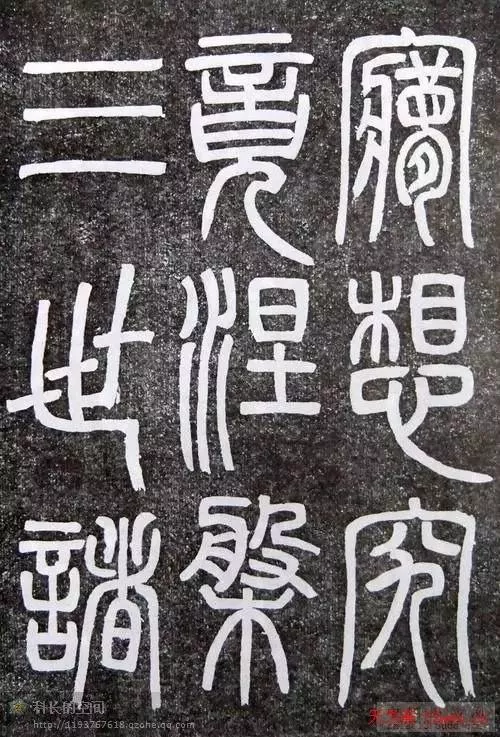 夢想究
竟涅槃
三世諸
科长的空间
http://1193767618.qzone.qq.com